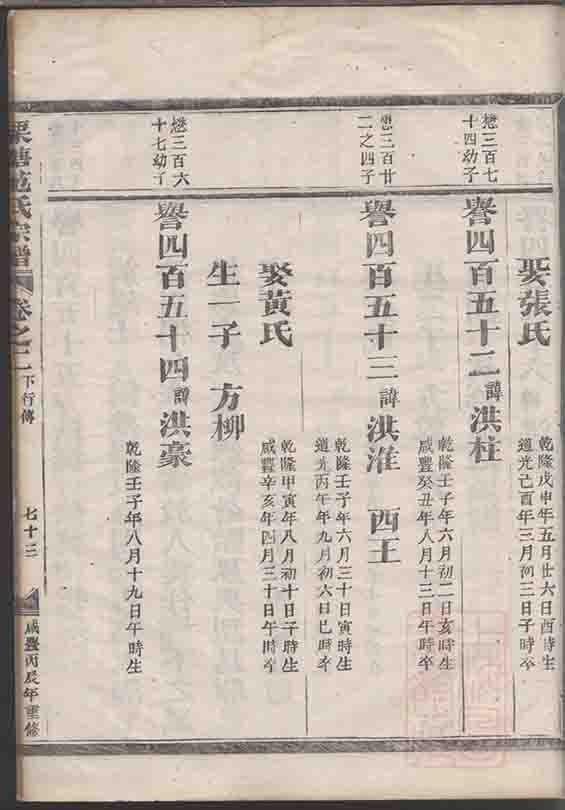 娶張氏
乾隆戊申年五月廿六日酉時生
道光己酉年三月初二日子時卒
懋三百七
十四幼子
譽四百五十二
諱
洪柱
乾隆壬子年六月初二日亥時生
咸豐癸丑年八月十三日午時卒
懋三百廿
二之四子
譽四百五十三
諱
洪淮 西王
乾隆壬子年六月三十日寅時生
道光丙午年九月初六日巳時卒
娶黃氏
乾隆甲寅年八月初十日子時生
咸豐辛亥年四月三十日午時卒
生一子 方柳
懋三百六
十七幼子
譽四百五十四
諱
洪豪
乾隆壬子年八月十九日午時生
氏宗譜
卷之二
下行傳
七十三
咸豐丙辰年重修